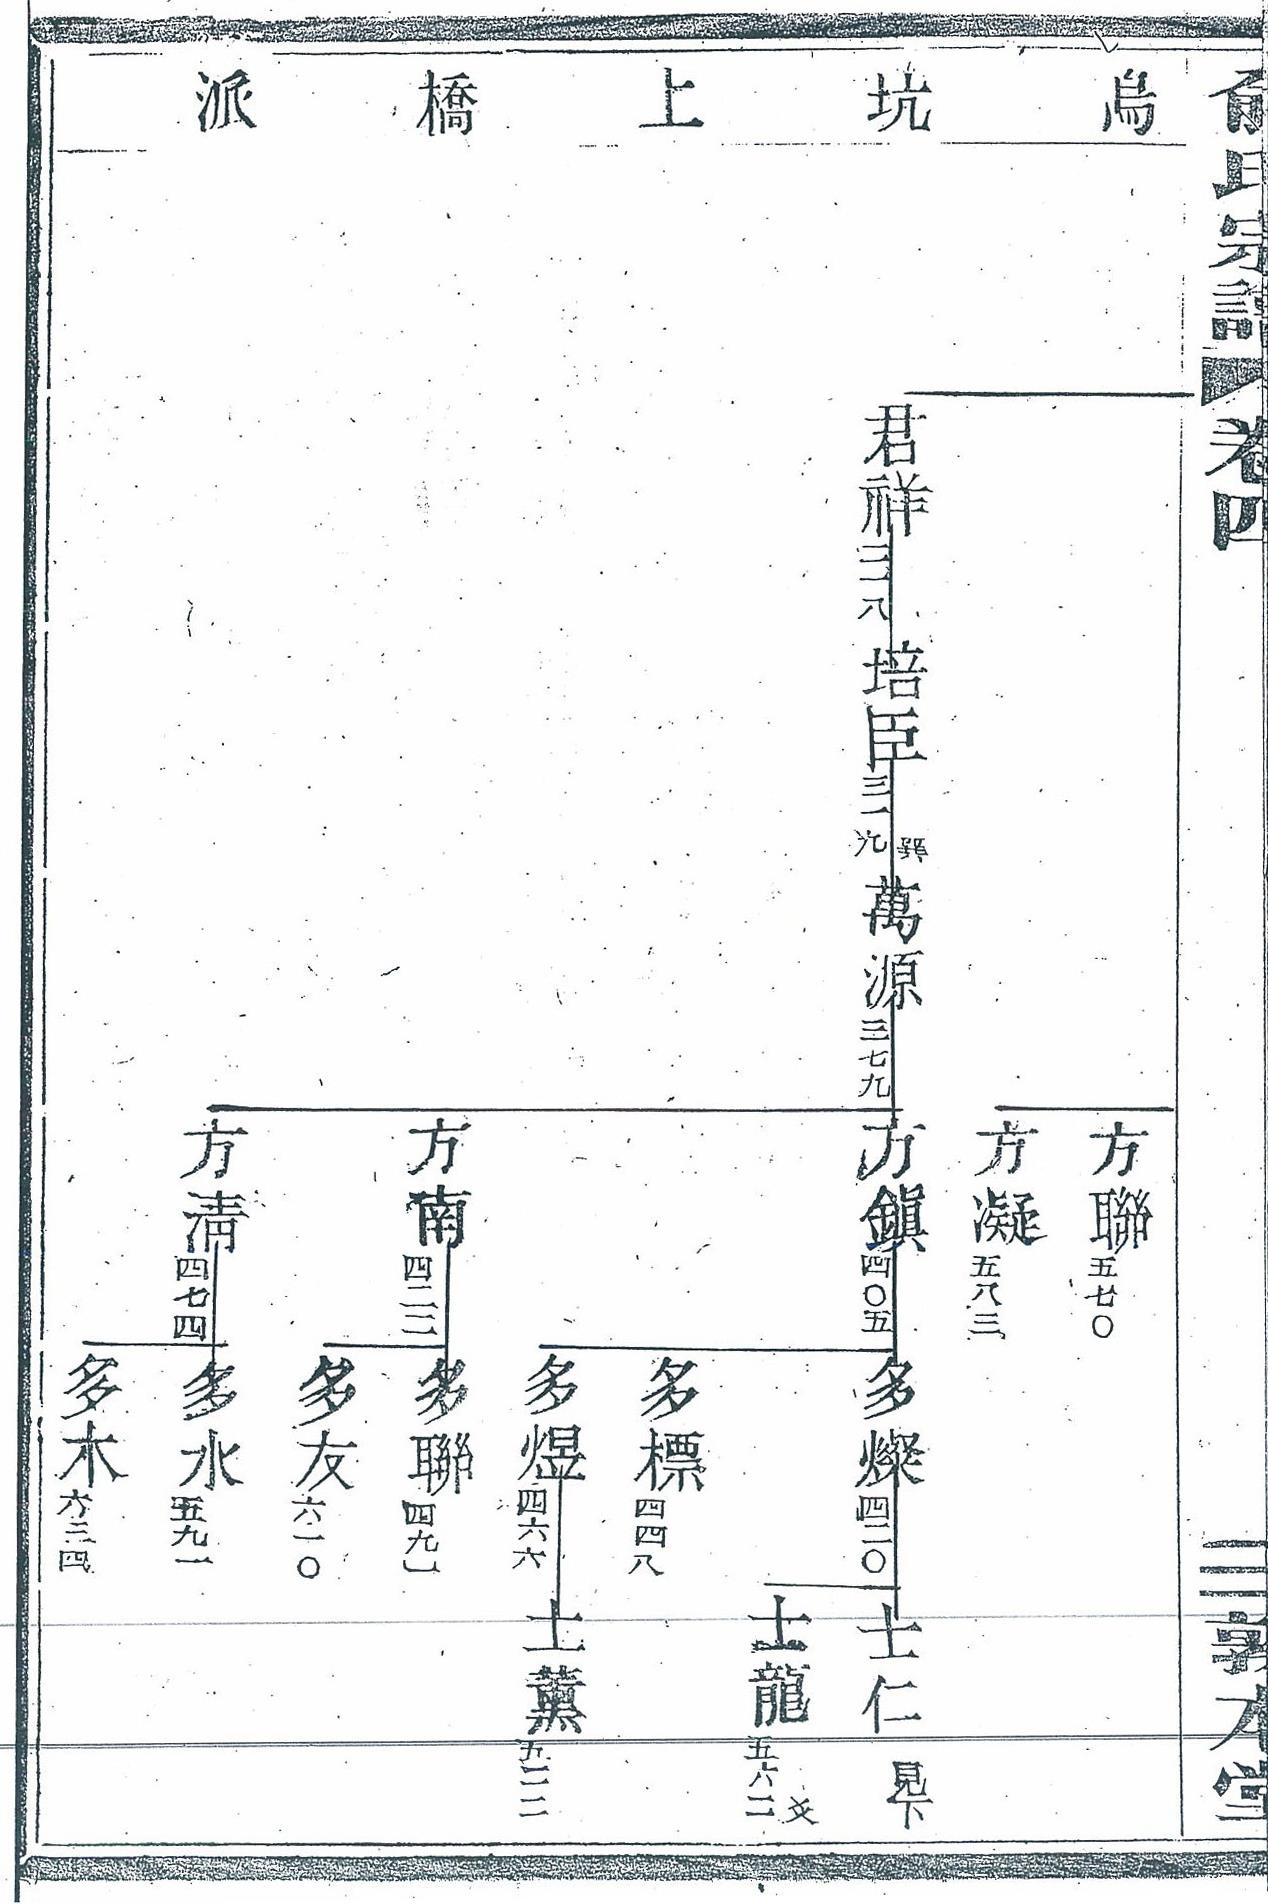 俞氏宗譜
卷四
三
敦本堂
烏坑上橋派
方聯五七〇
方凝五八三
君祥三一八
培臣三一九
萬源三七九
方鎮四〇五
多燦四二〇
士仁見下
士龍五六二
多標四四八
多煜四六六
士薰五二二
方南四二二
多聯四九一
多友六一〇
方清四七四
多水五九一
多木六二四